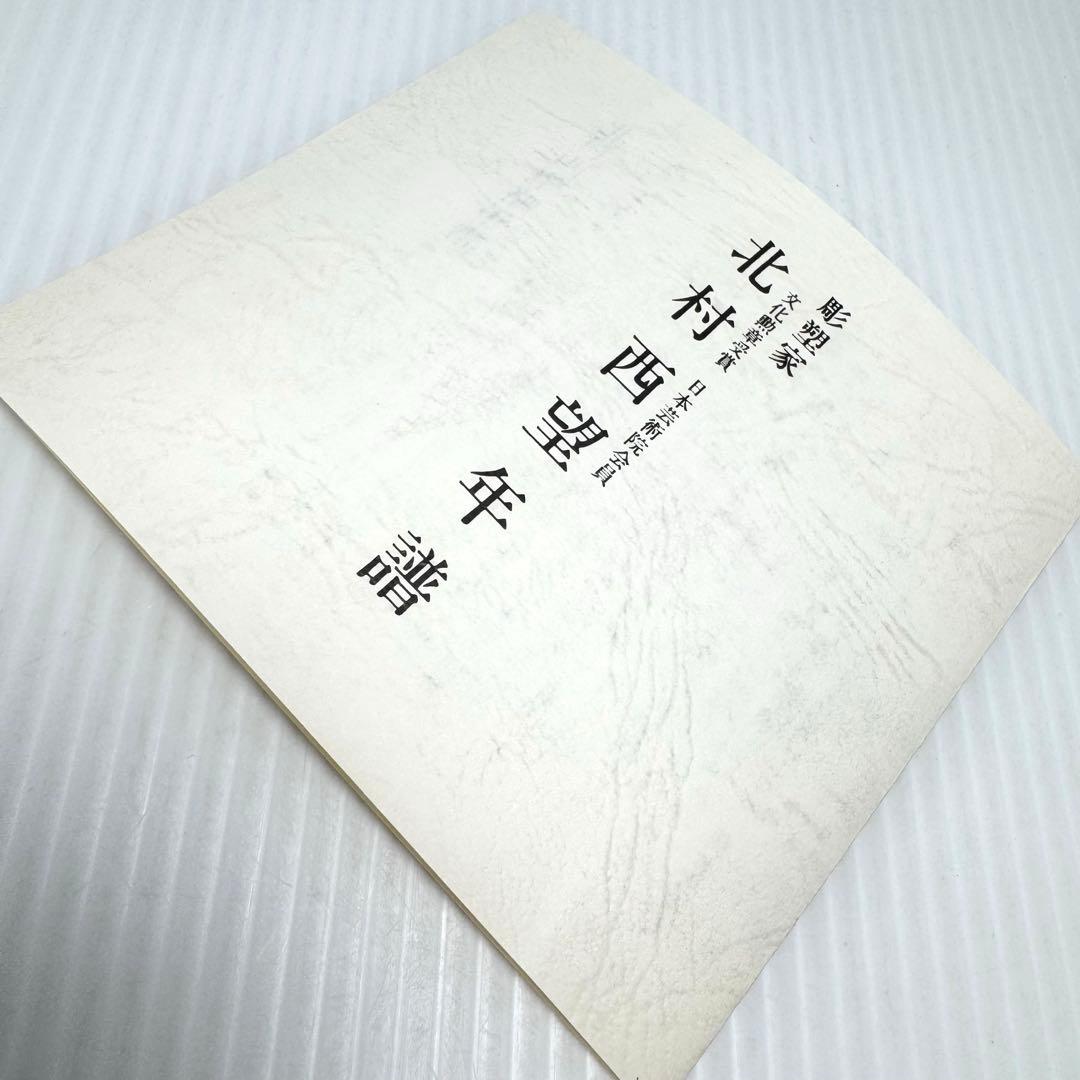 彫塑家
文化勲章受賞
日本芸術院会員
北村西望年譜